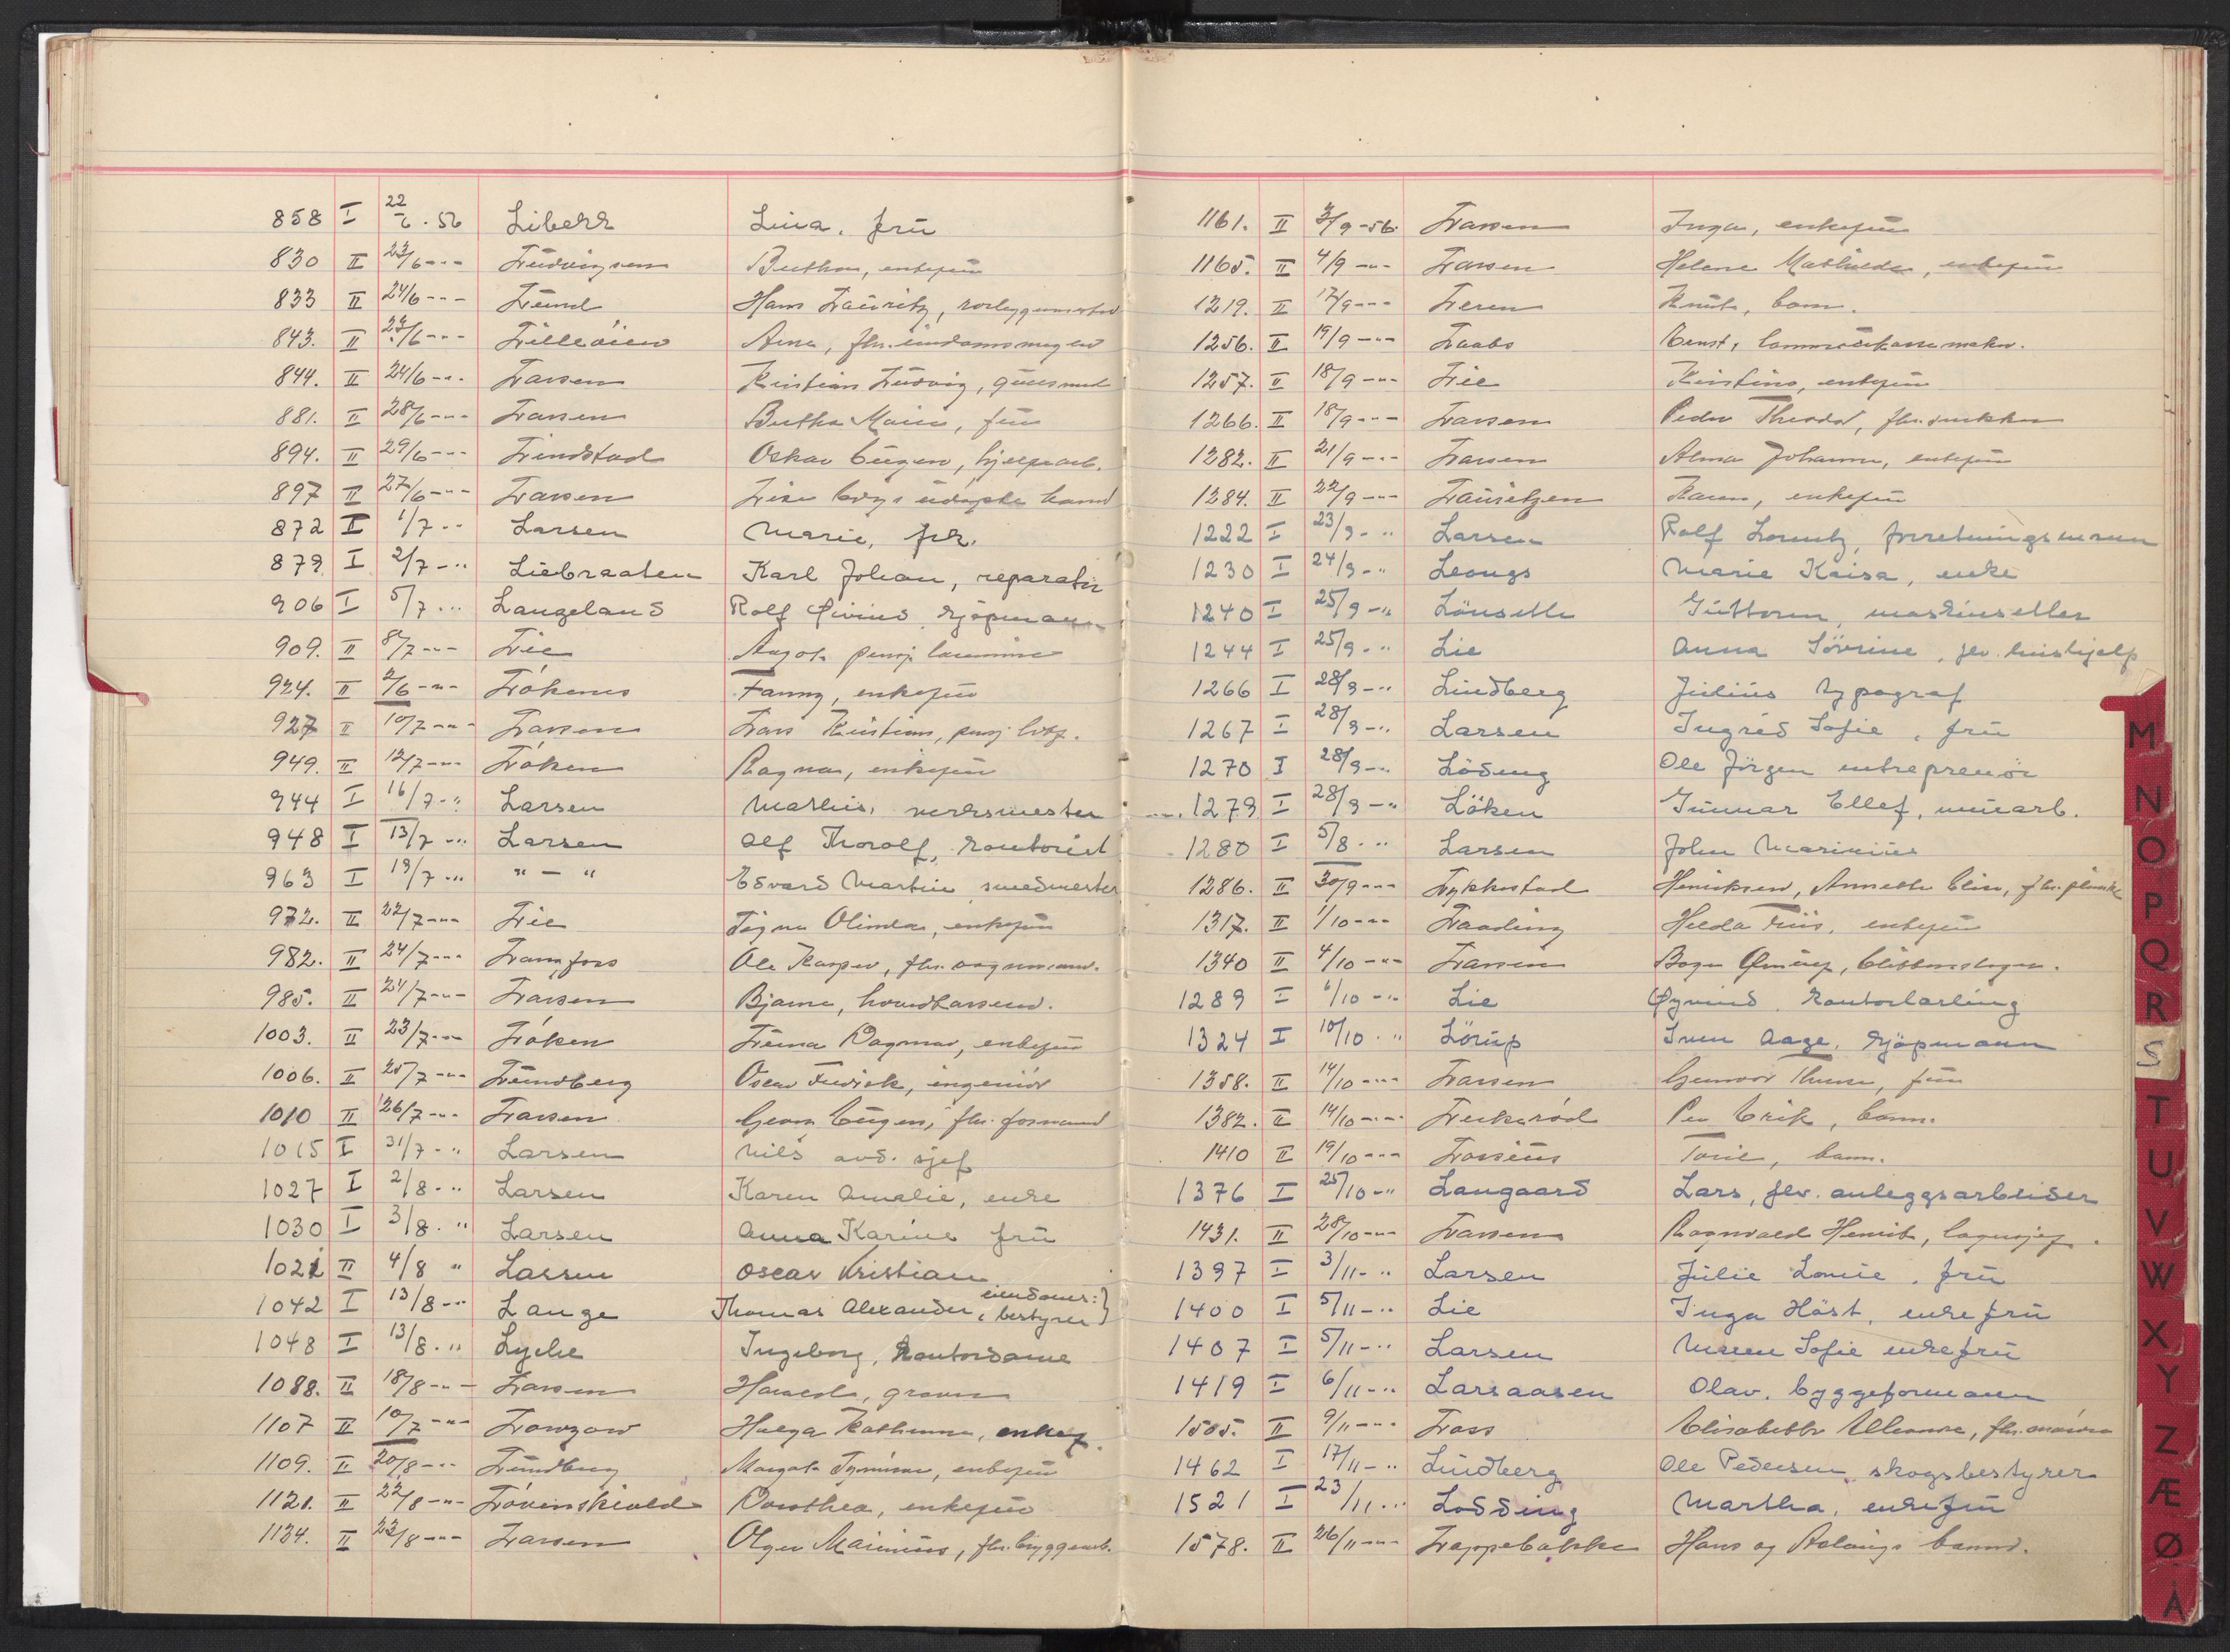 858 I 22/6 . 56 Liberr Lina, frü
830 II 23/6 -"- Ludvigsen Berthe, enkefrue
833 II 24/6 -"- Lund Hans Lauritz, rørleggermester
843. II 23/6 -"- Lilleøien Arne,
844. II 24/6 -"- Larsen Kristian Ludvig,
881. II 28/6 -"- Larsen Berthe Marie, frue
894. II 29/6 -"- Lindstad Oskar Eugen, hjelpearb.
897 II 27/6 -"- Larsen udøpte barn
872 I 1/7 -"- Larsen Marie, frk.
879 I 2/7 -" Liebraaten Karl Johan, reparatør
906 I 5/7 ... Langeland Rolf Øivind kjøpmann
909. II 8/7 -"- Lie Aagot pensj. lærerinne
924. II 2/6 -"- Løkenes Fanny, enkefrue
927 II 10/7 -"- Larsen Lars Kristian, pensj.
949. II 12/7 -"- Løken Ragna, enkefrue
944 I 16/7 -" Larsen Marius, verksmester
948 I 13/7 -" Larsen Alf Thorolf, kontorist
963 I 19/7 -" " - " Edvard Martin smedmester
972. II 22/7 -"- Lie Signe Olinda, enkefrue
982. II 24/7 -"- Langfoss Ole Kasper,
985. II 24/7 -"- Larsen Bjarne, hovedkasserer.
1003. II 23/7 -"- Løken Dagmar, enkefrue
1006. II 25/7 -"- Lundberg Oscar Fredrik, ingeniør
1010 II 26/7 -"- Larsen Georg Eugen, fhv. formand
1015 I 31/7 -" Larsen Nils avd. sjef
1027 I 2/8 -" Larsen Karen Amalie, enke
1030 I 3/8 . " Larsen Anna Karine frü
1021 II 4/8 " Larsen Oscar Kristian
1042 I 13/8 -" Lange Thomas Alexander, eiendoms: bestyrer }
1048 I 13/8 . " Lyche Ingeborg, kontordame
1088. II 18/8 -"- Larsen Harald,
1107 II 10/7 -"- Lowzow Helga Kathrine, enkef.
1109. II 20/8 -"- Lundberg Margit enkefrue
1121. II 22/8 -"- Løvenskiold Dorothea, enkefrue
1134. II 23/8 -"- Larsen Olger Marinius, fhv. bryggearb.
1161. II 3/9 -56. Larsen Inga, enkefrue
1165. II 4/9 -"- Larsen Helene Mathilde, enkefrue
1219. II 17/9 -"- Leren Knut, barn.
1256. II 19/9 -"- Laabs Ernst,
1257. II 18/9 -"- Lie Kristine, enkefrue
1266. II 18/9 -"- Larsen Peder Theodor, fhv. snekker
1282. II 21/9 -"- Larsen Alma Johanne, enkefrue
1284. II 22/9 -"- Lauritzen Karen, enkefrue
1222 I 23/9 - " Larsen Rolf Lorentz, forretningsmann
1230 I 24/9 - " Leongs Marie Kaisa, enke
1240 I 25/9 - " Lönsette Guttorm maskinsetter
1244 I 25/9 - " Lie Anna Sövrine, flv. hushjelp
1266 I 28/9 - " Lindberg Julius typograf
1267 I 28/9 - " Larsen Ingrid Sofie, frü
1270 I 28/9 - " Lödeng Ole Jörgen entreprenör
1279 I 28/9 - " Löken Gunnar Ellef, murarb.
1280 I 5/8 . " Larsen John Marinius
1286. II 30/9 -"- Lykkestad Henriksen, Annette Elise,
1317. II 1/10 -"- Laading Helda Friis, enkefrue
1340 II 4/10 -"- Larsen
1289 I 6/10 - " Lie Øyvind, kontorlærling
1324 I 10/10 . " Lörup Sven Aage, kjøpmann
1358. II 14/10 -"- Larsen Gunvor Thune, frue
1382. II 14/10 -"- Leikerød Per Erik, barn.
1410 II 19/10 -"- Larsen barn.
1376 I 25/10 - " Langaard Lars, flv. anleggsarbeider
1431. II 28/10 -"- Larsen Ragnvald Henrik, lagersjef.
1397 I 3/11 - " Larsen Julie Lovise, frü
1400 I 5/11 - " Lie Inga Höst, enkefrü
1407 I 5/11 - " Larsen Maren Sofie enkefrü
1419 I 6/11 - " Larsaasen Olav, byggeformann
1505. II 9/11 -"- Lass Elisabeth
1462 I 17/11 - " Lindberg Ole Pedersen, skogsbestyrer
1521 I 23/11 ... Lodding Martha, enkefrü
1578. II 26/11 -"- Lappebakke Hans og barn.
M
N
O
P
Q
R
S
T
U
V
W
X
Y
Z
Æ
Ø
Å